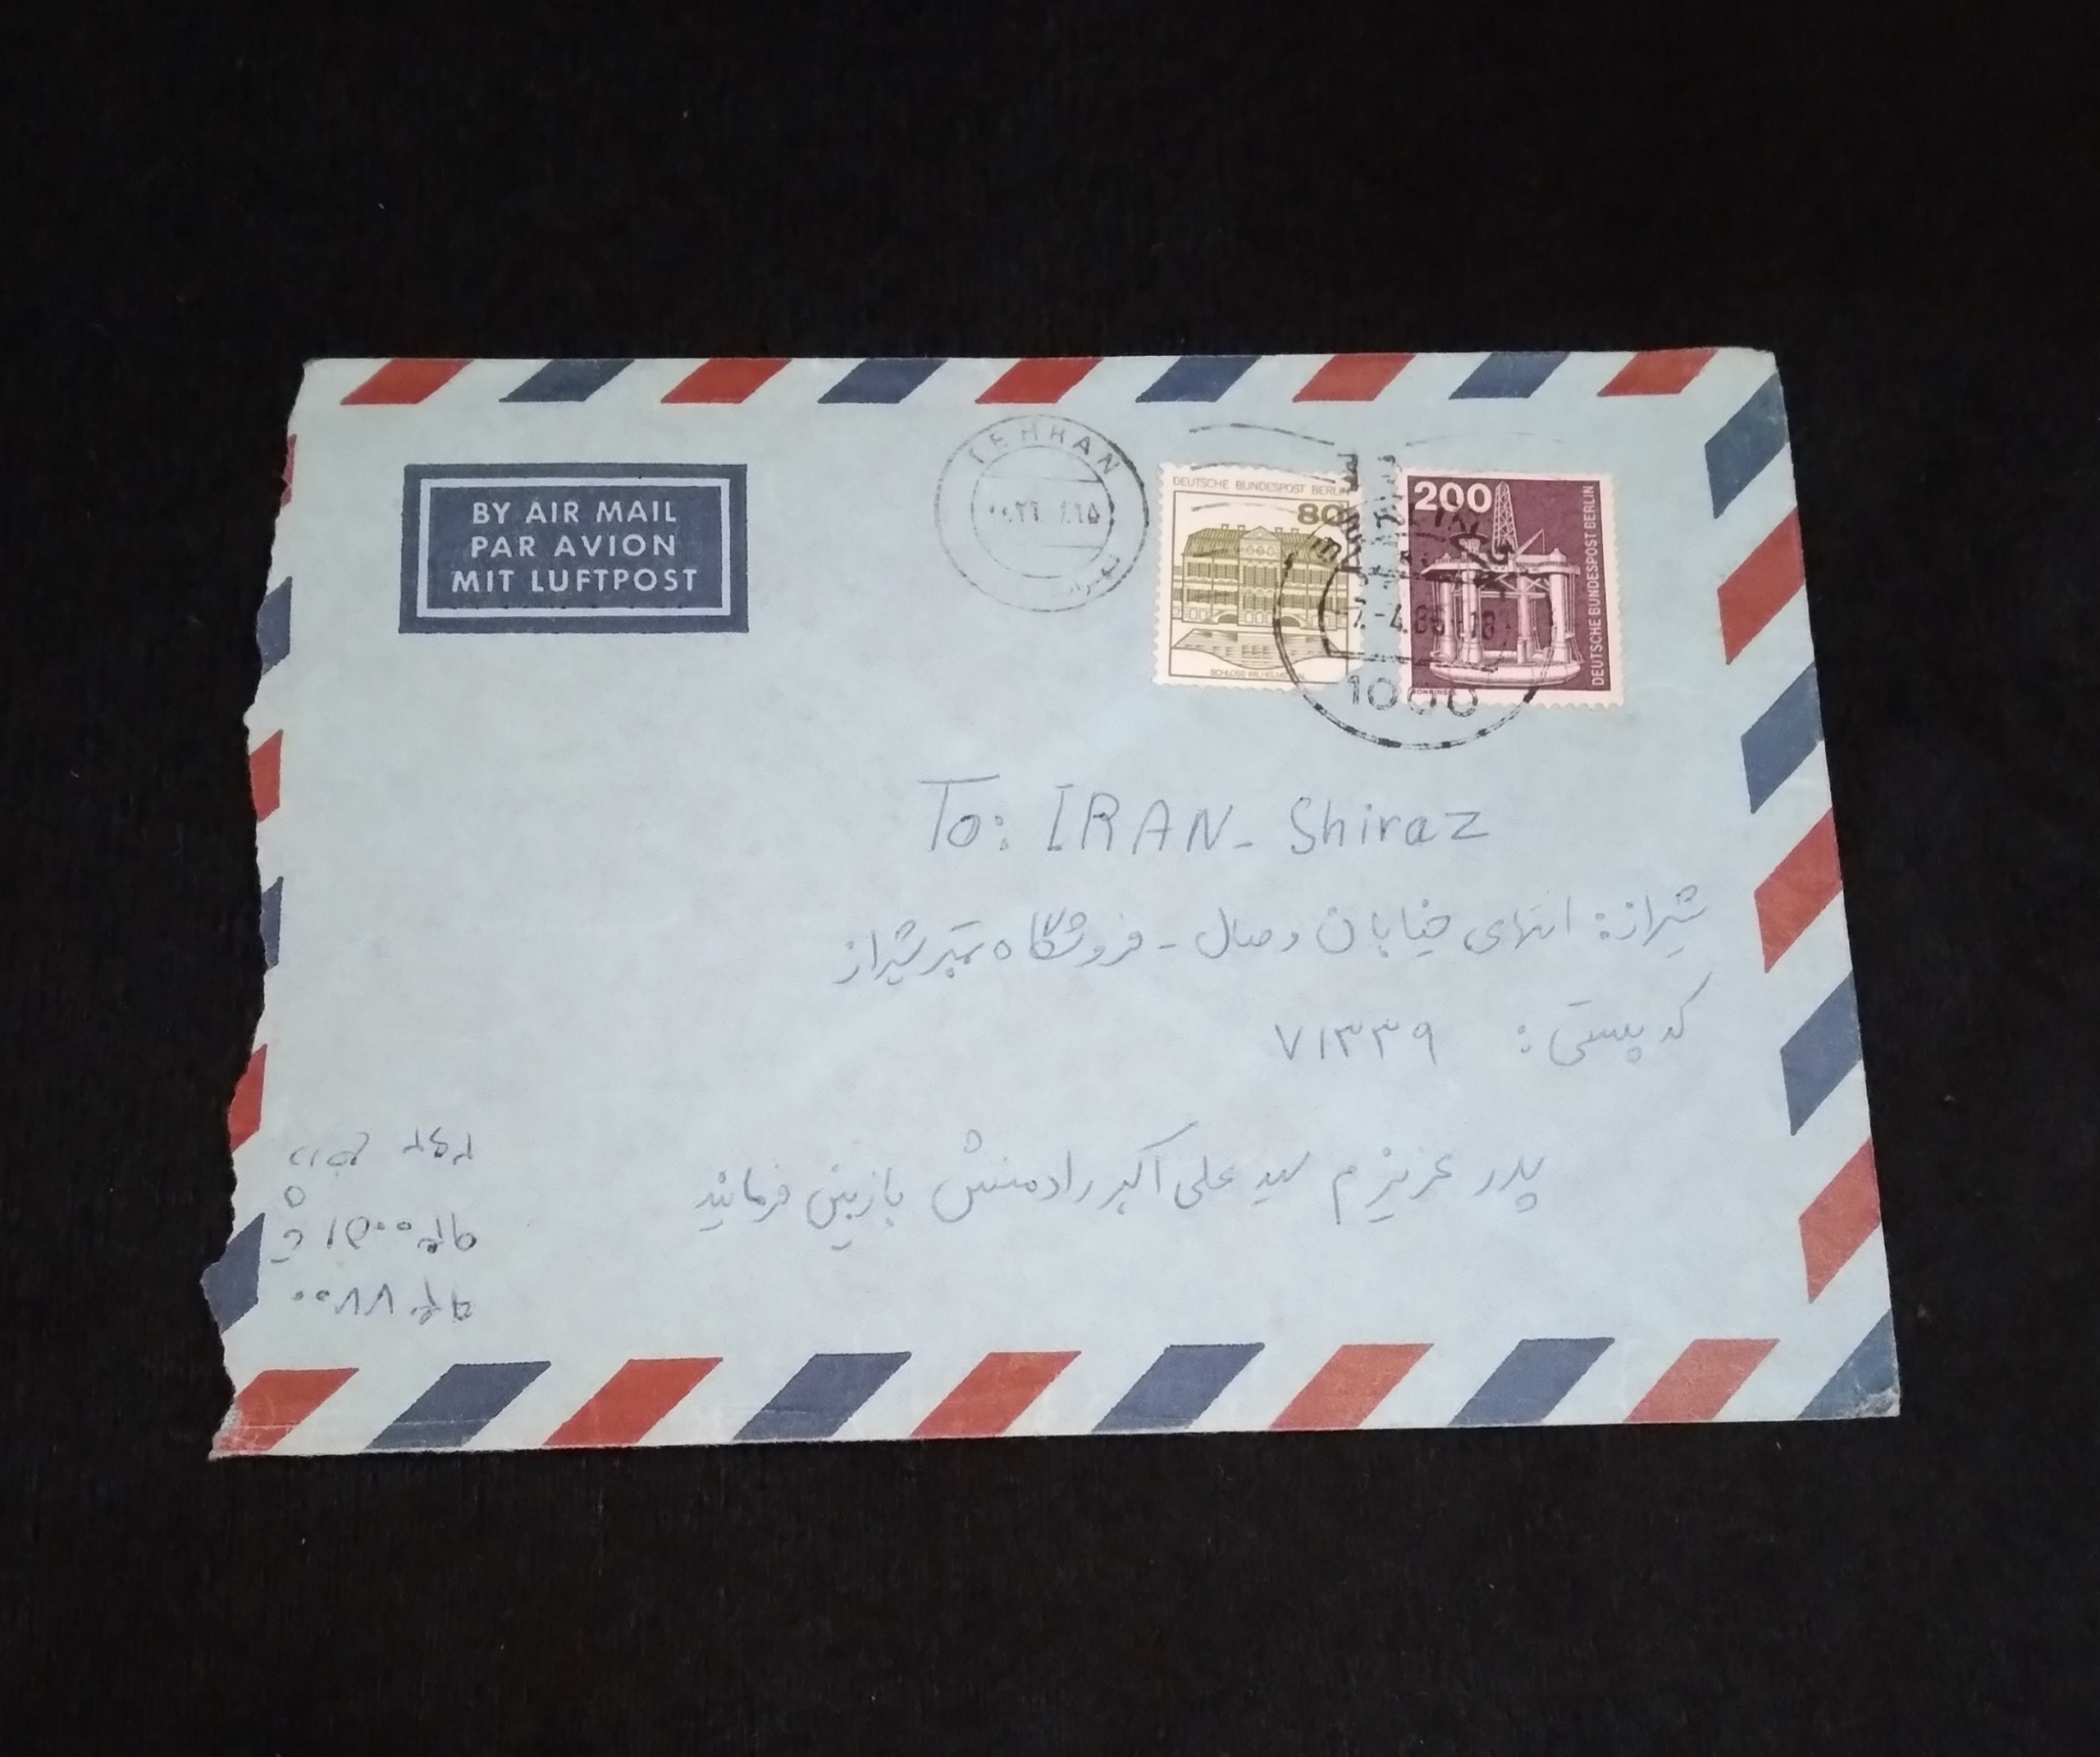 BY AIR MAIL
PAR AVION
MIT LUFTPOST
TEHRAN
DEUTSCHE BUNDESPOST BERLIN
80
SCHLOSS WILHELMSTHAL
200
DEUTSCHE BUNDESPOST BERLIN
BOHRINSEL
1000
To: IRAN - Shiraz
شیراز: انتهای خیابان وصال - فروشگاه تمبر شیراز
کد پستی: ۷۱۳۳۹
پدر عزیزم سید علی اکبر رادمنش بازبین فرمائید